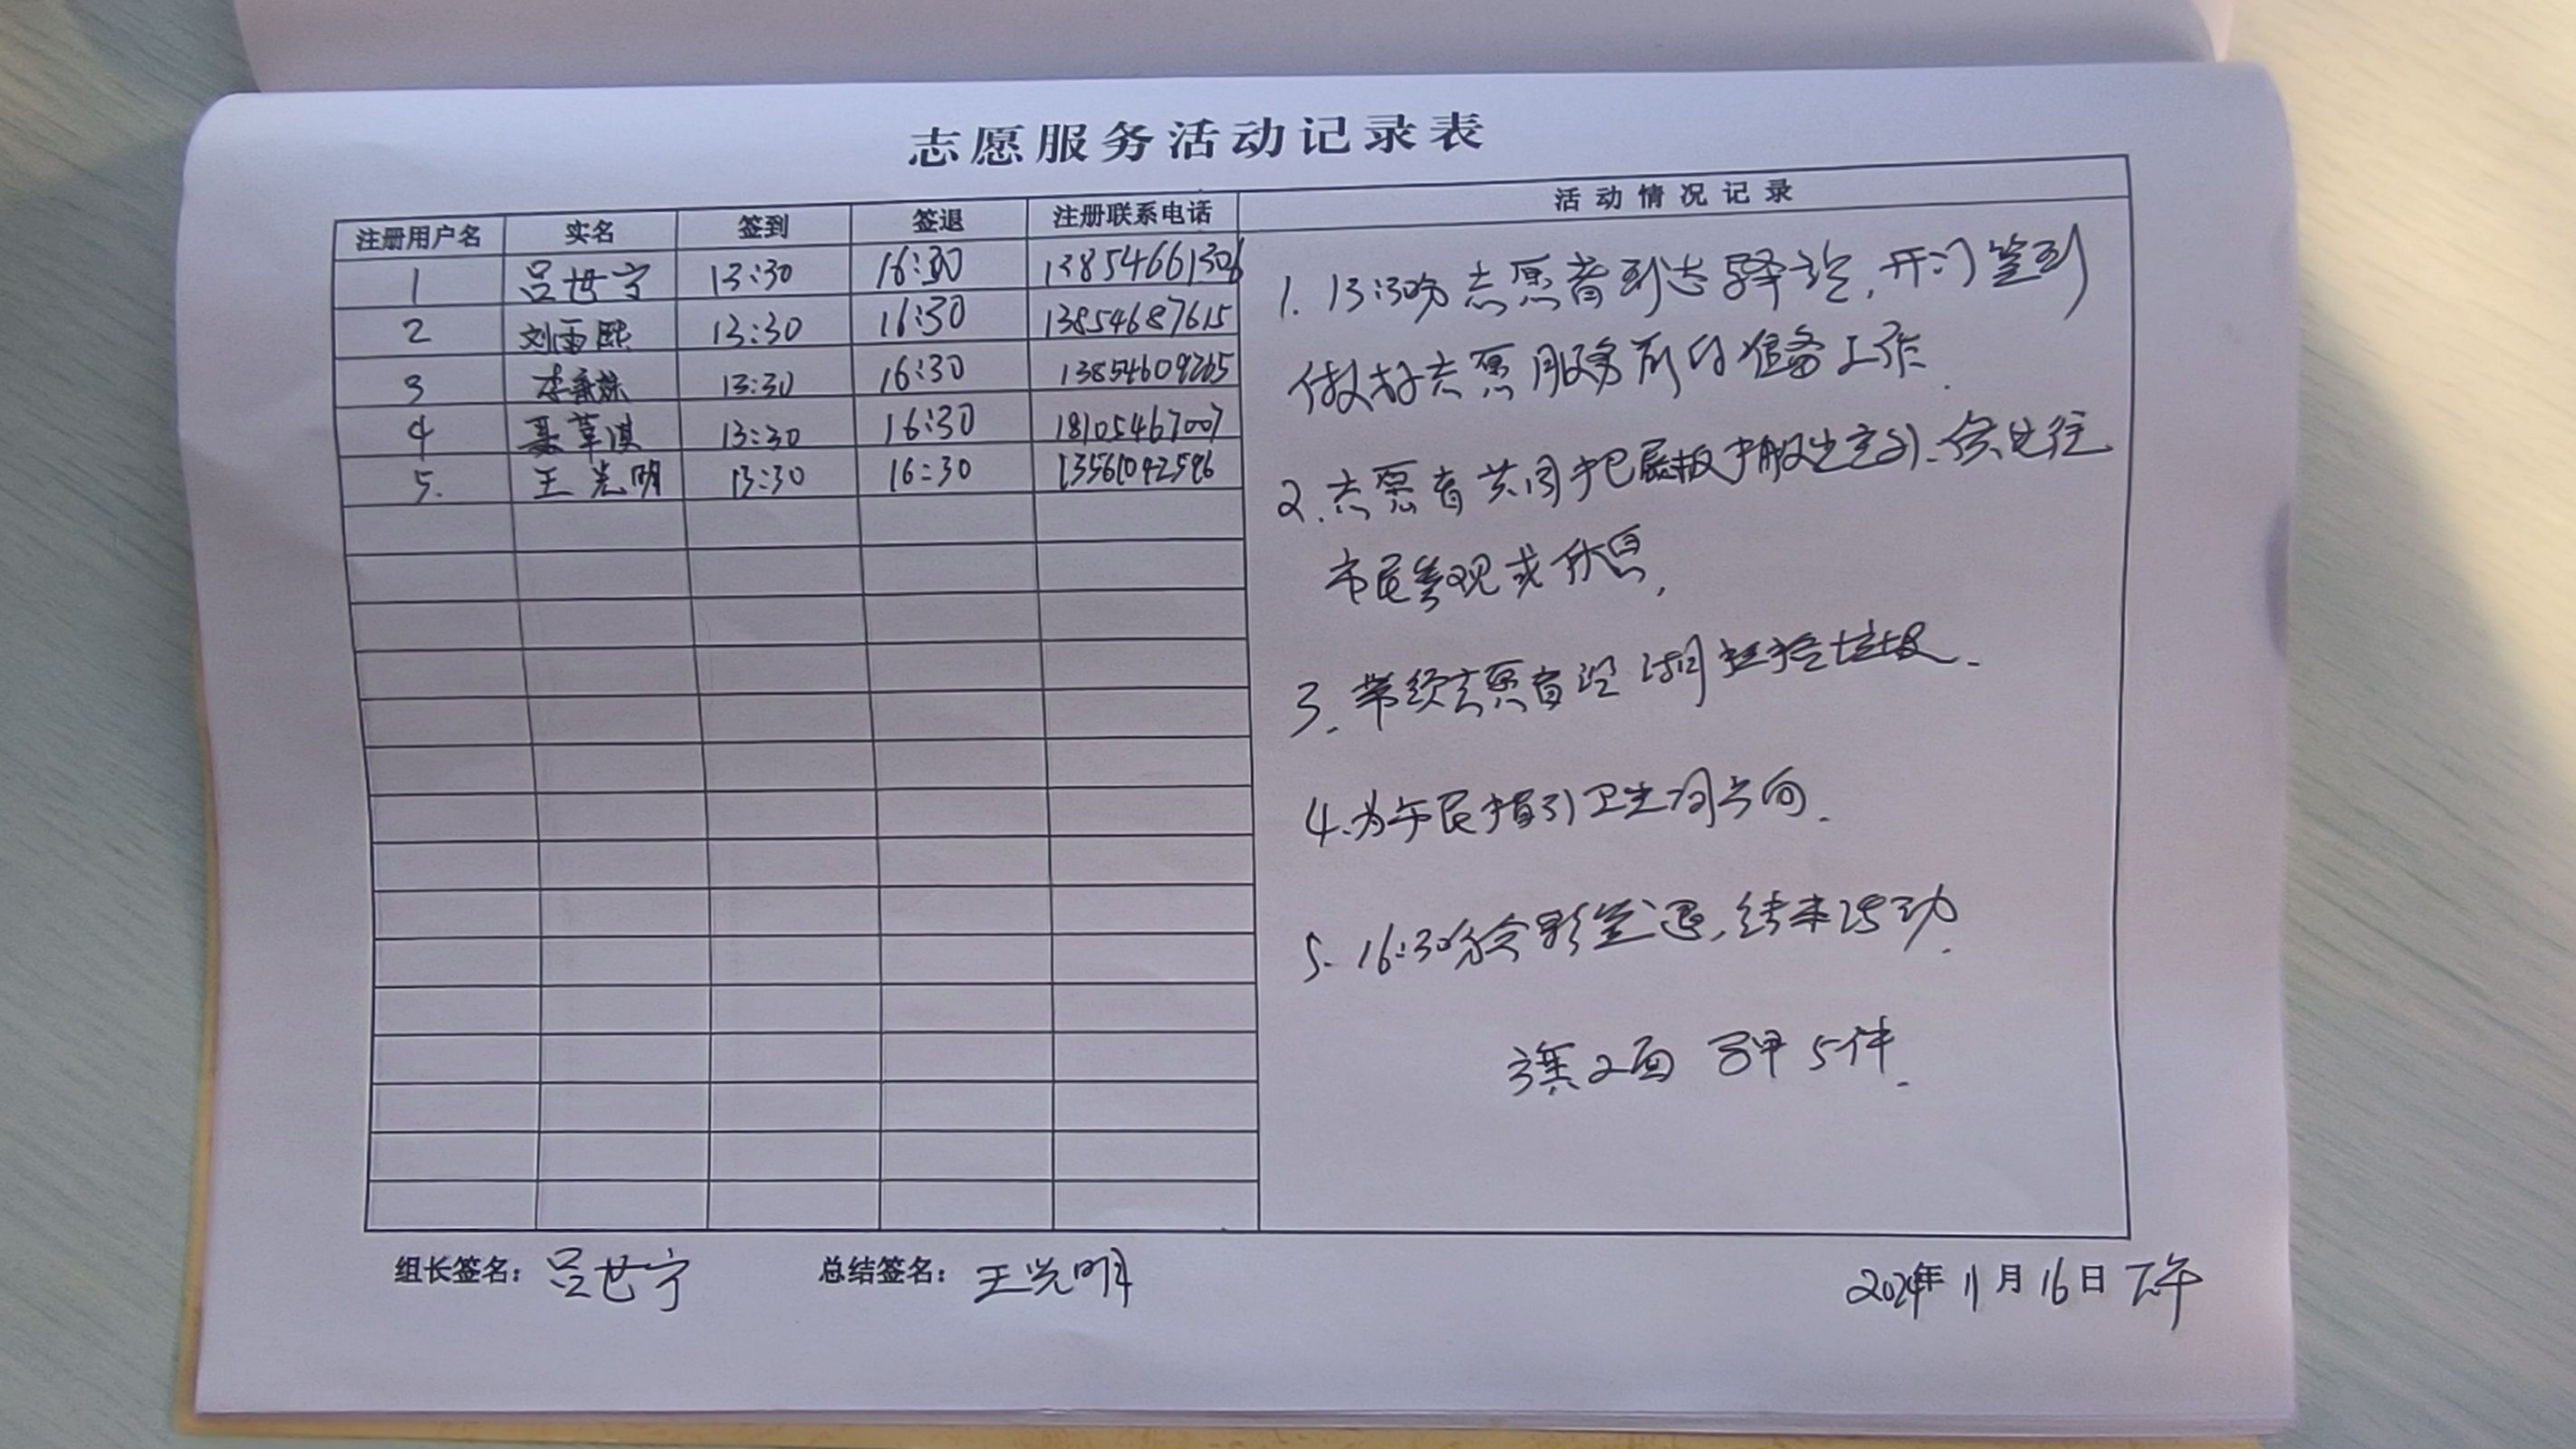 志愿服务活动记录表
注册用户名 实名 签到 签退 注册联系电话 活动情况记录
1 吕世宁 13:30 16:30 13854661306
2 刘雨熙 13:30 16:30 13854687615
3 13:30 16:30 13854609265
4 13:30 16:30 18105467007
5. 王光明 13:30 16:30 13561042596
1. 13:30分志愿者到志驿站,开门签到
做好志愿服务前的准备工作.
2. 志愿者共同把展板搬出室外.供过往
市民参观或休息,
3. 带领志愿者沿湖捡拾垃圾.
4.为市民指引卫生间方向.
5. 16:30分合影签退,结束活动.
旗2面 马甲5件.
组长签名: 吕世宁 总结签名: 王光明 2024年11月16日下午